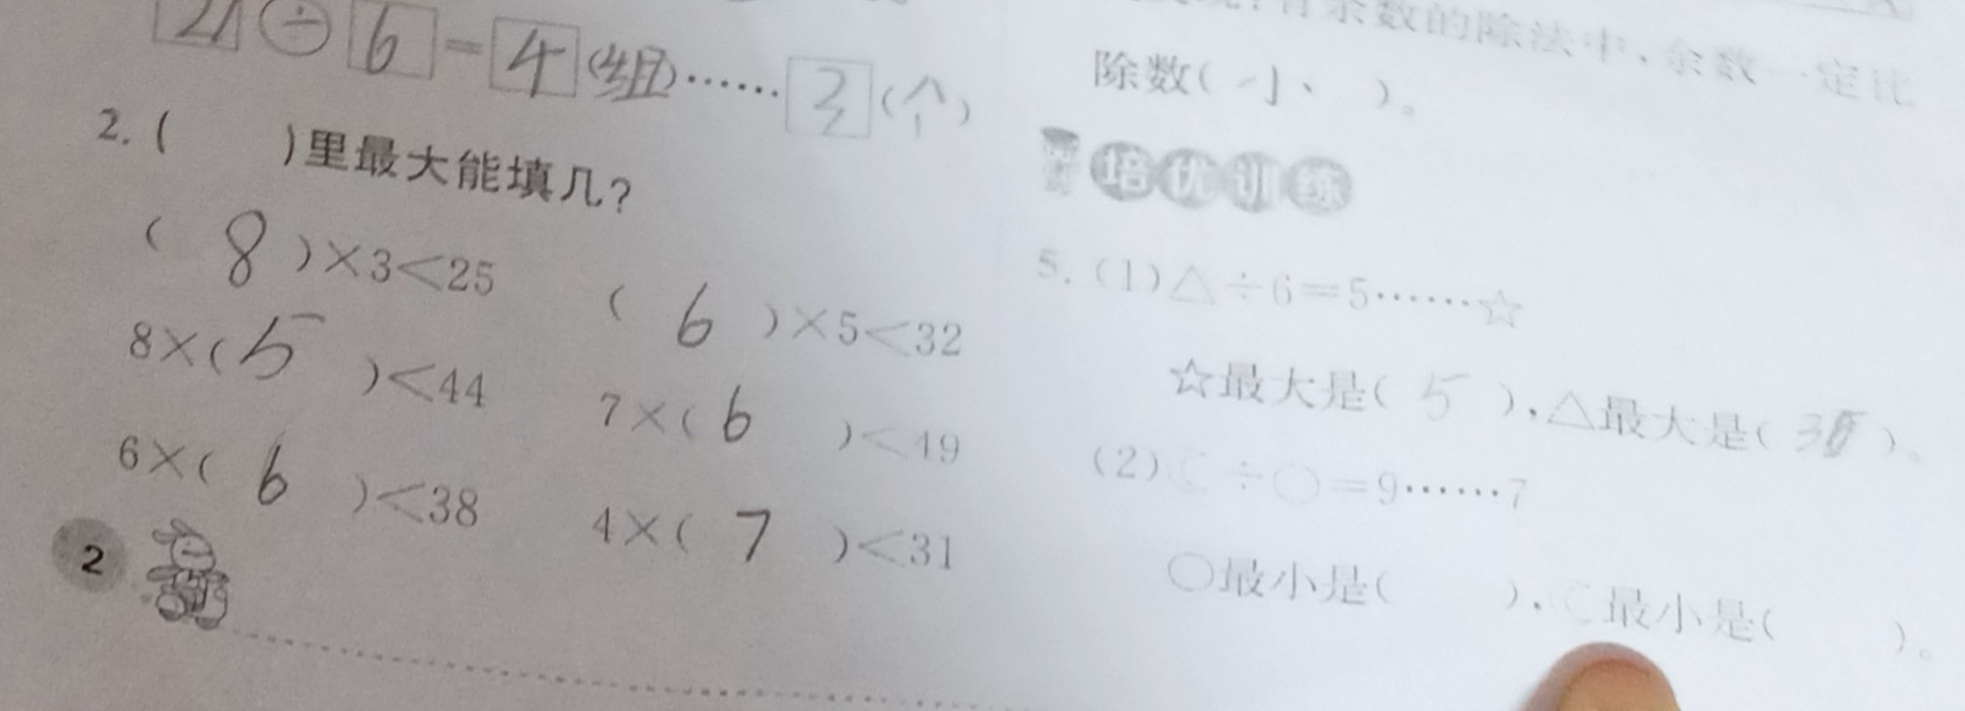 ÷ 6 = 4 (组) …… 3 (个)
2. ( )里最大能填几?
( 8 )×3<25
( 6 )×5<32
8×( 5 )<44
7×( 6 )<49
6×( 6 )<38
4×( 7 )<31
2
有余数的除法中,余数一定比
除数( 小 )。
培优训练
5. (1)△÷6=5……☆
☆最大是( 5 ),△最大是( )。
(2) ÷○=9……7
○最小是( ), 最小是( )。